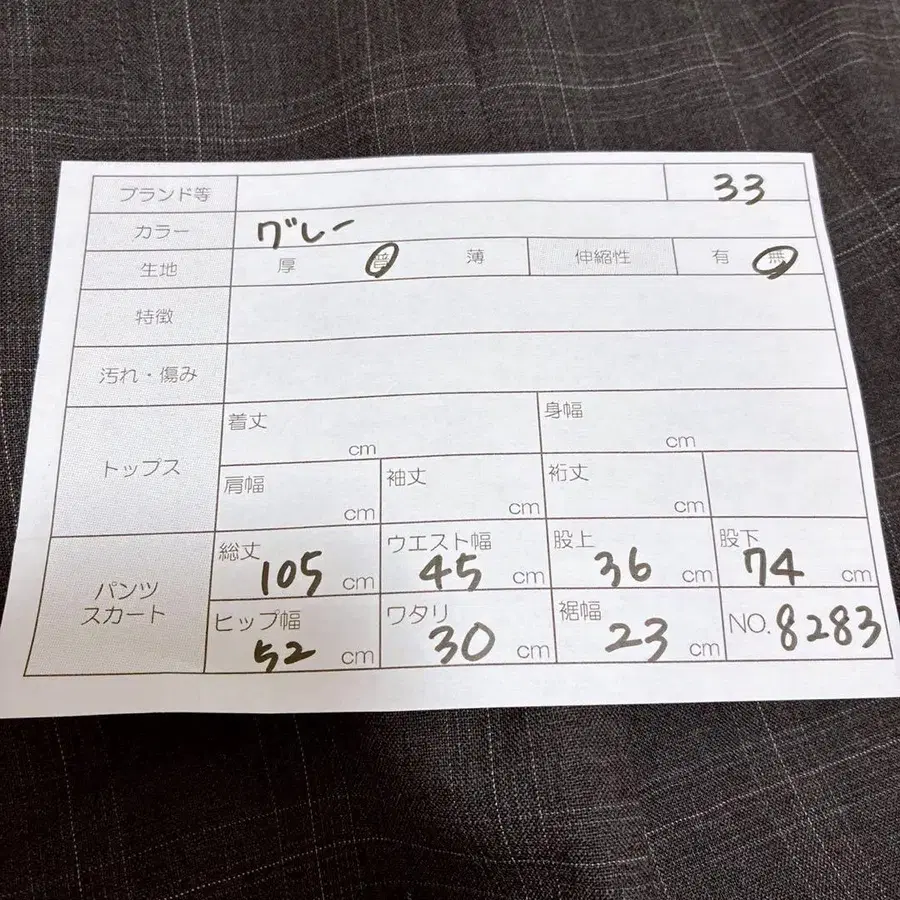 ブランド等 33
カラー グレー
生地 厚 普 薄 伸縮性 有 無
特徴
汚れ・傷み
トップス
着丈 cm 身幅 cm
肩幅 cm 袖丈 cm 裄丈 cm
パンツ
スカート
総丈 105 cm ウエスト幅 45 cm 股上 36 cm 股下 74 cm
ヒップ幅 52 cm ワタリ 30 cm 裾幅 23 cm NO. 8283